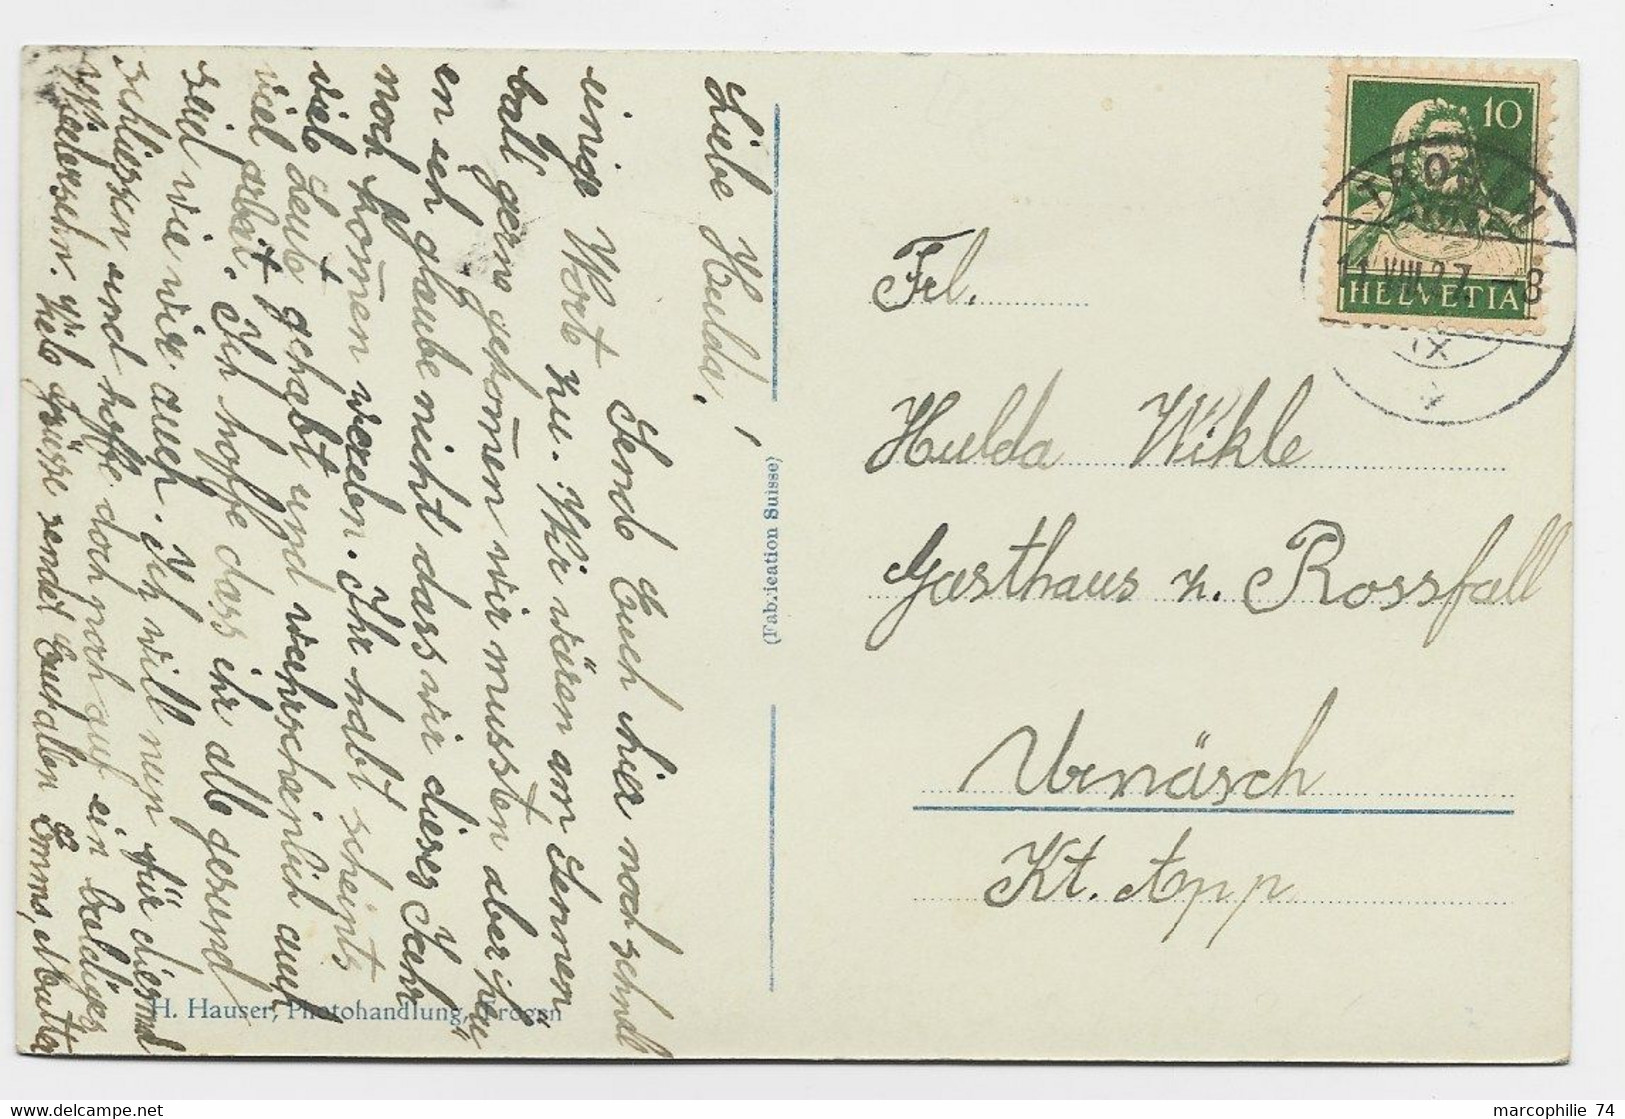 Liebe Hulda!
Send Euch hier noch schnell
einige Wort zu. Wir wären am Sennen
ball gern gekom̄en wir mussten aber heu
en ich glaube nicht dass wir dieses Jahr
noch kom̄en werden. Ihr habt scheints
viele Leute gehabt und wahrscheinlich auch
viel arbeit. Ich hoffe dass ihr alle gesund
seid wie wir auch. Ich will nun für diesmal
schliessen und hoffe doch noch auf ein baldiges
Wiedersehn. Viele Grüsse sendet Euch allen Emma, Mutter
(Fabrication Suisse)
H. Hauser, Photohandlung, Trogen
10
HELVETIA
TROGEN
11.VIII.27.–8
IX
Frl.
Hulda Wikle
Gasthaus z. Rossfall
Urnäsch
Kt. App.
marcophilie 74